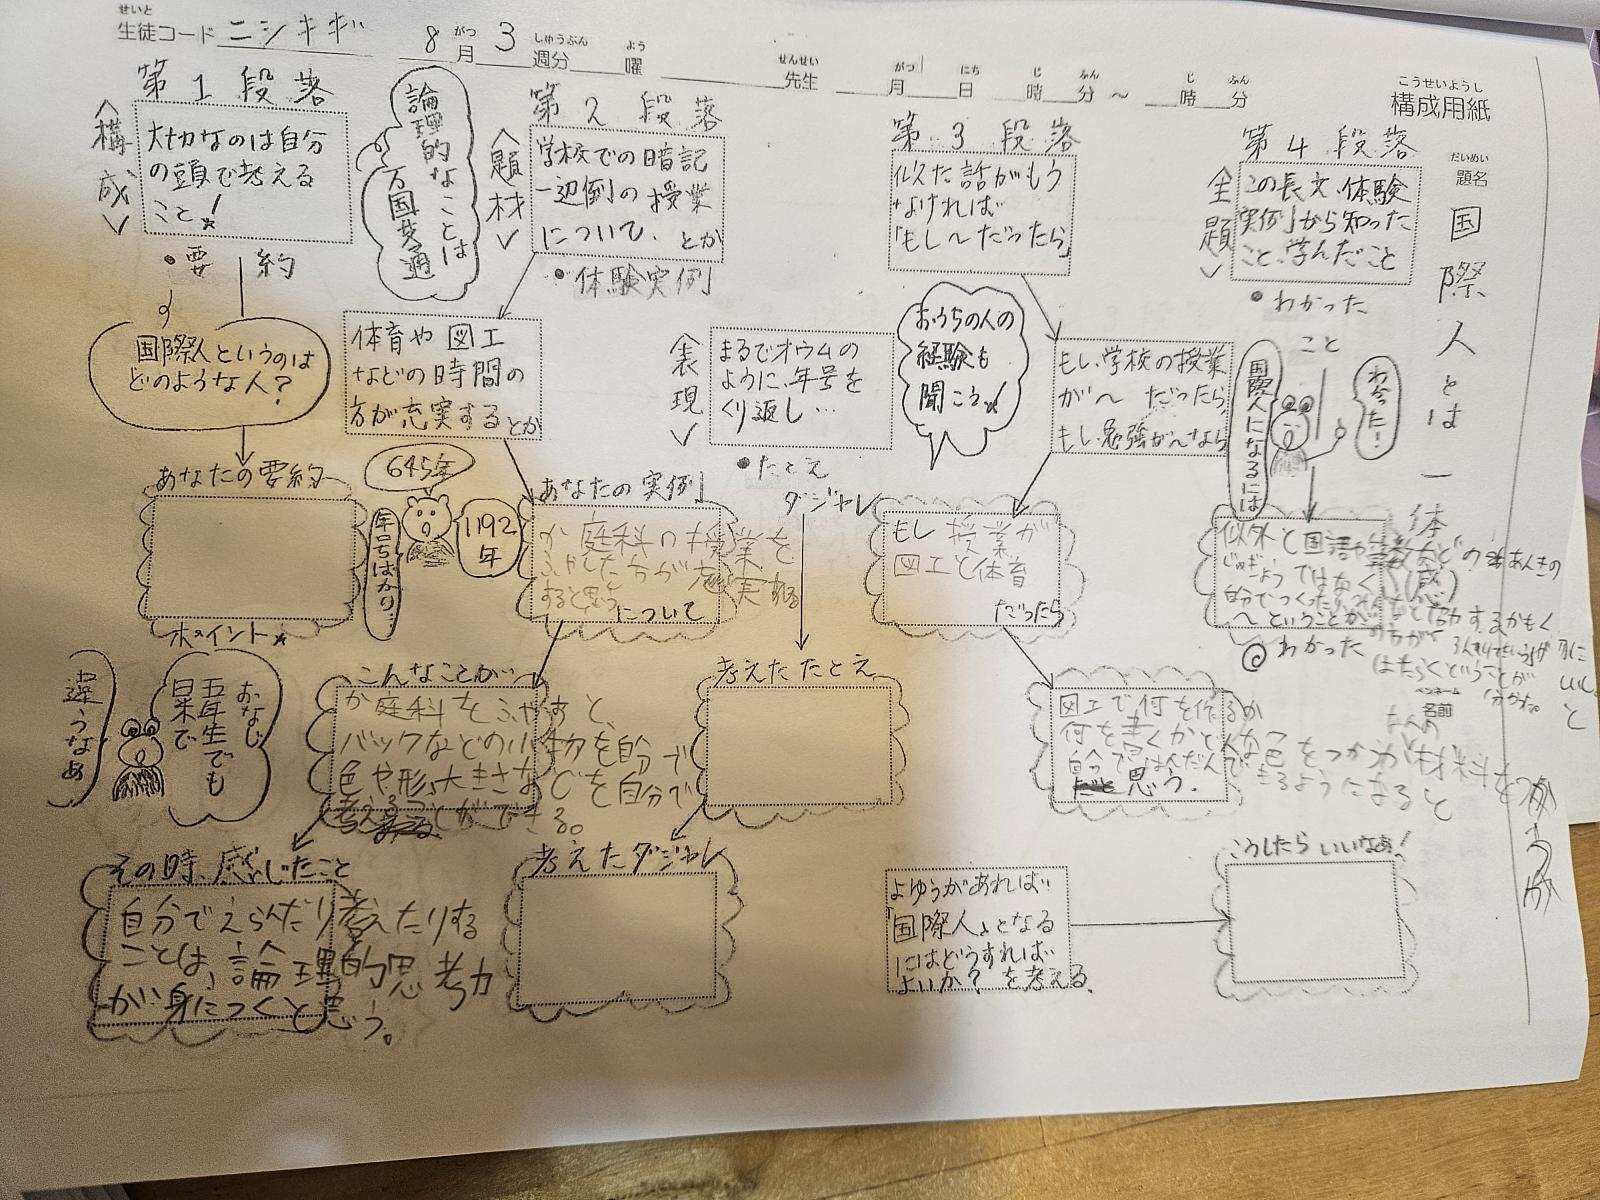 せいと
生徒コード ニシキギ 8月3週分 曜 先生 月 日 時 分 ～ 時 分
がつ しゅうぶん よう せんせい がつ にち じ ふん じ ふん
こうせいようし
構成用紙
だいめい
題名
国際人とは一体
第1段落
<構成>
大切なのは自分
の頭で考える
こと!
・要約
国際人というのは
どのような人？
あなたの要約
ポイント
論理的なことは
万国共通
第2段落
<題材>
学校での暗記
一辺倒の授業
について、とか
・体験実例
体育や図工
などの時間の
方が充実するとか
あなたの実例
か庭科の授業を
ふやした方が充実
すると思う
について
645年
1192年
年号ばかり…
こんなことが
か庭科をふやすと、
バックなどの小物を自分で
色や形、大きさなどを自分で
考えることができる。
おなじ
五年生でも
日米で
違うなあ
その時、感じたこと
自分でえらんだり考えたりする
ことは、論理的思考力
が身につくと思う。
第3段落
似た話がもう
なければ
「もし～だったら」
おうちの人の
経験も
聞こう!
<表現>
まるでオウムの
ように、年号を
くり返し…
・たとえ
ダジャレ
考えたたとえ
考えたダジャレ
もし、学校の授業
が～だったら、
もし、勉強が～なら
もし授業が
図工と体育
だったら
図工で何を作るか
何を書くかどんな色をつかうか材料をつかうか
自分ではんだんできるようになると
思う.
よゆうがあれば
「国際人」となる
にはどうすれば
よいか？を考える
こうしたらいいなあ!
第4段落
<主題>
この長文、体験
実例から知った
こと、学んだこと
・わかったこと
わかった！
国際人になるには
自分でつくったり
～ということが
わかった
ペンネーム
名前